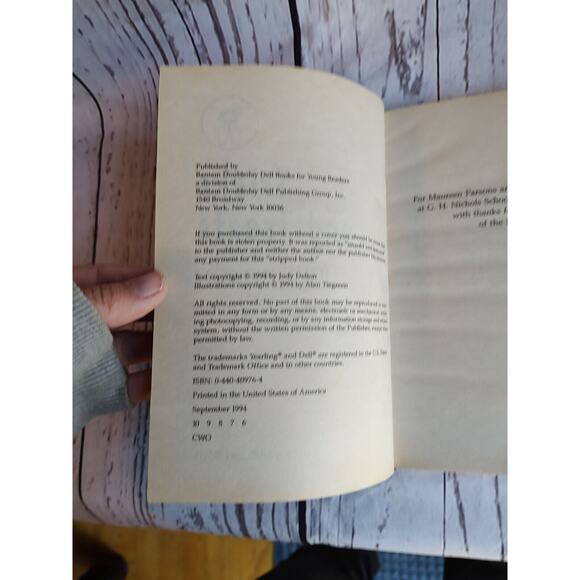 Published by
Bantam Doubleday Dell Books for Young Readers
a division of
Bantam Doubleday Dell Publishing Group, Inc.
1540 Broadway
New York, New York 10036
If you purchased this book without a cover you should be aware that
this book is stolen property. It was reported as "unsold and destroyed"
to the publisher and neither the author nor the publisher has received
any payment for this "stripped book."
Text copyright © 1994 by Judy Delton
Illustrations copyright © 1994 by Alan Tiegreen
All rights reserved. No part of this book may be reproduced or trans-
mitted in any form or by any means, electronic or mechanical, includ-
ing photocopying, recording, or by any information storage and retrieval
system, without the written permission of the Publisher, except where
permitted by law.
The trademarks Yearling® and Dell® are registered in the U.S. Patent
and Trademark Office and in other countries.
ISBN: 0-440-40976-4
Printed in the United States of America
September 1994
10 9 8 7 6
CWO
For Maureen Parsons
at G. H. Nichols
with thanks
of the